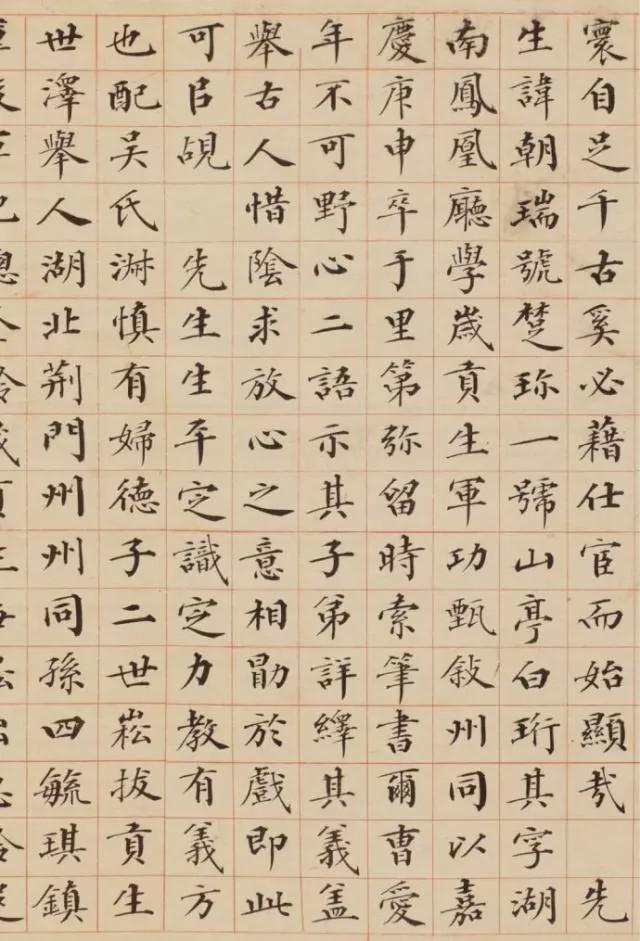 寰自足千古奚必藉仕宦而始顯哉　先
生諱朝瑞號楚珍一號山亭白珩其字湖
南鳳凰廳學歲貢生軍功甄敘州同以嘉
慶庚申卒于里第弥留時索筆書爾曹愛
年不可野心二語示其子弟詳繹其義盖
舉古人惜陰求放心之意相勖於戲即此
可㠯覘　先生生平定識定力教有義方
也配吳氏淑慎有婦德子二世崧拔貢生
世澤舉人湖北荆門州州同孫四毓琪鎮